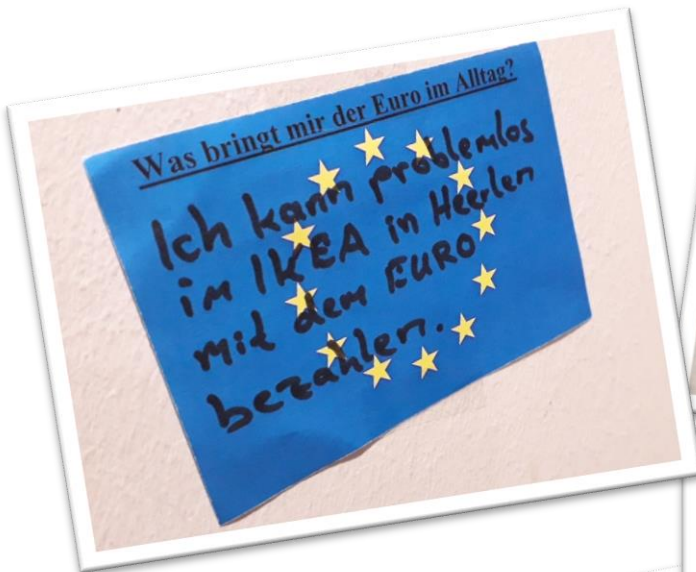 Was bringt mir der Euro im Alltag?
Ich kann problemlos
im IKEA in Heerlen
mit dem EURO
bezahlen.